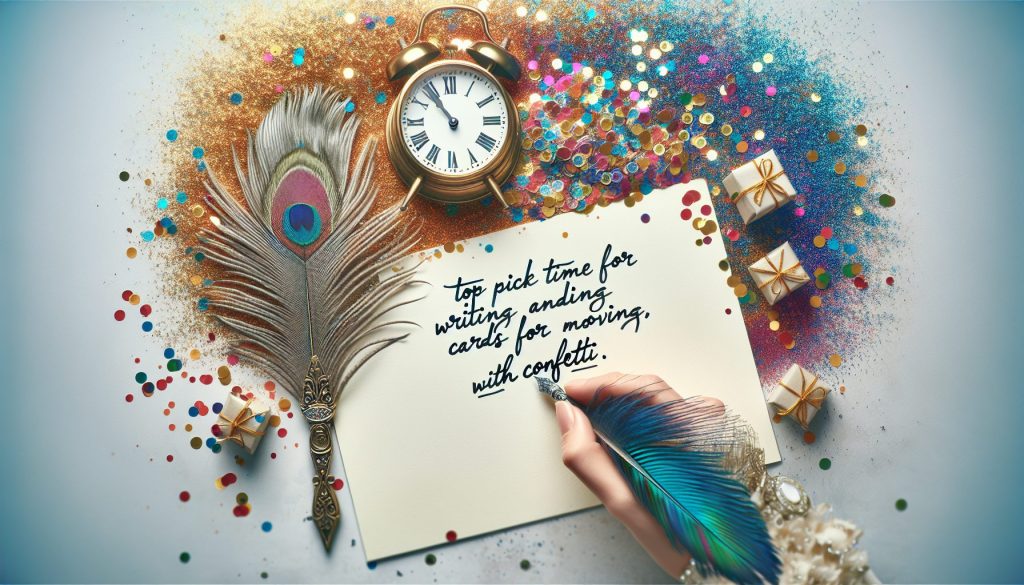 top pick time for
writing anding
cards for moving,
with confetti.